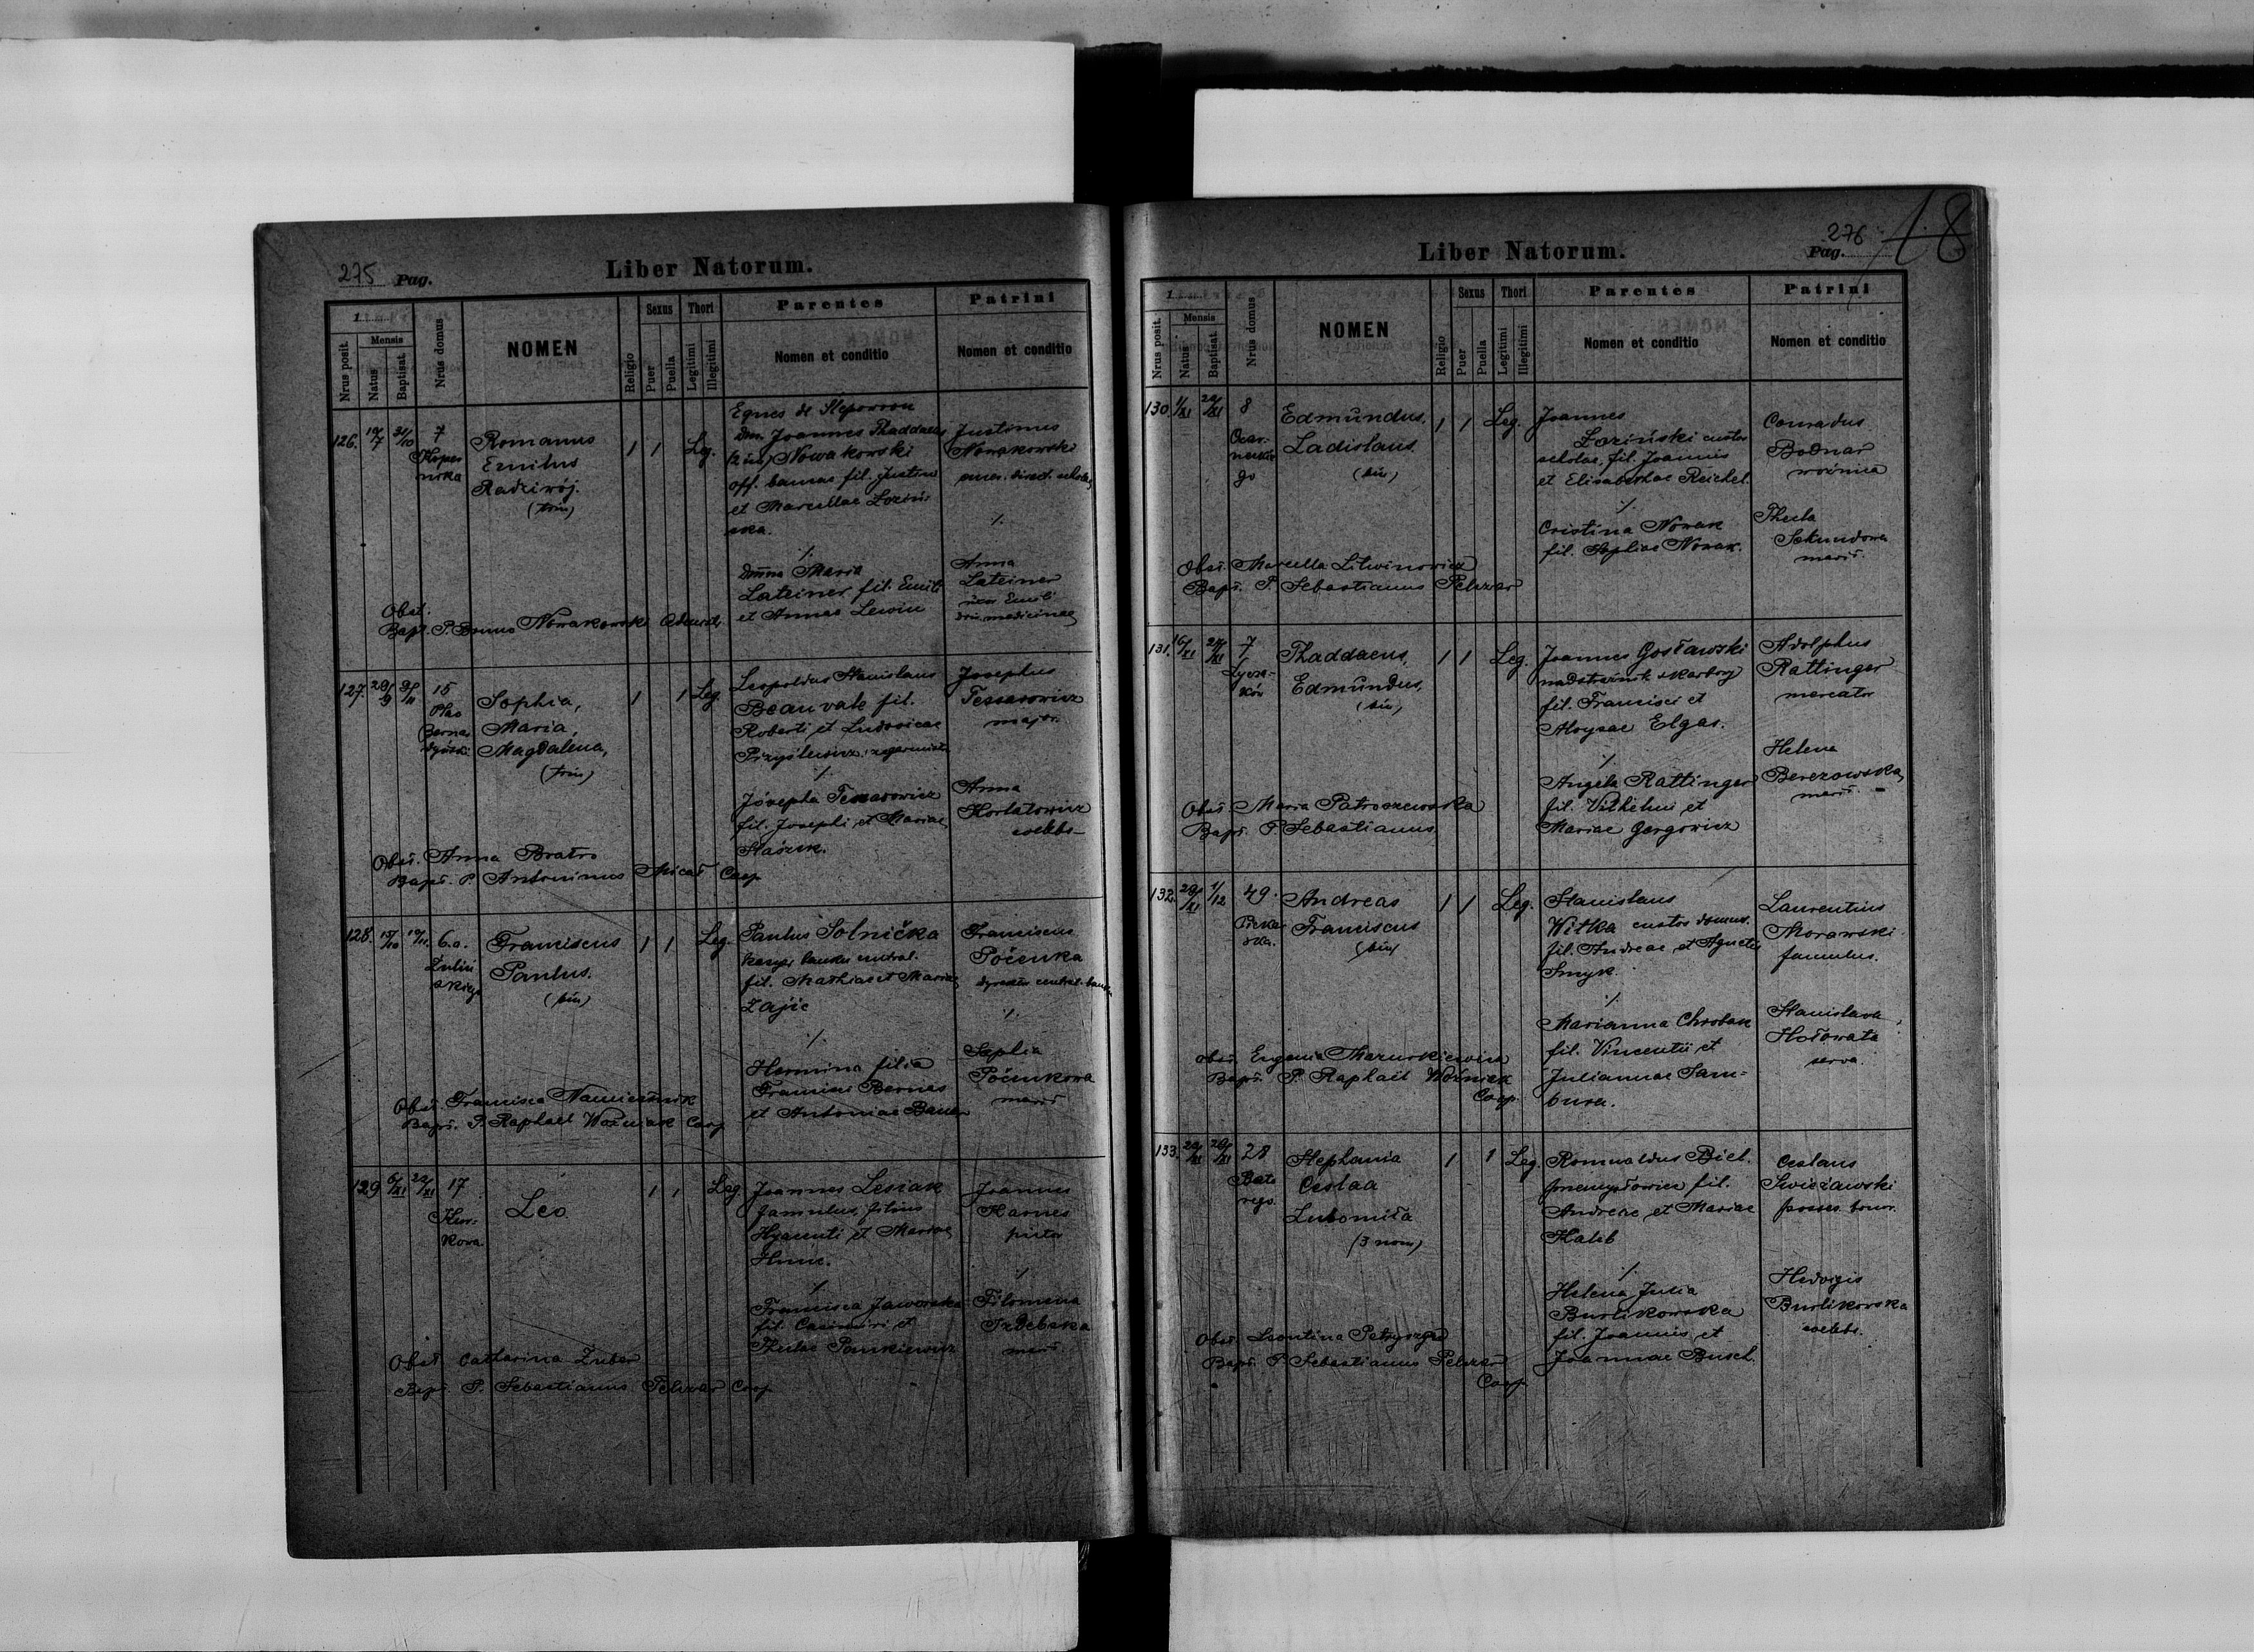 275 Pag.
Liber Natorum.
1
Nrus posit.
Mensis
Natus
Baptisat.
Nrus domus
NOMEN
Religio
Sexus
Puer
Puella
Thori
Legitimi
Illegitimi
Parentes
Nomen et conditio
Patrini
Nomen et conditio
126. 19/7 31/10 7
Romanus
Emilus
Radziwój.
(trin)
1 1 Leg.
Dm. Joannes Thaddaeus
Nowakowski
off. bancae fil. Justini
et Marcellae Łoziń
ska.
%
Dmna Maria
Lateiner fil. Emili
et Annae Lewin
Justinus
Nowakowski
%
Anna
Lateiner
uxor Emili
dris medicinae
Obst.
Bapt. P. Bruno Nowakowski
127. 28/9 9/11 15
Plac
Bernar
dyński
Sophia,
Maria,
Magdalena,
(trin)
1 1 Leg.
Leopoldus Stanislaus
Beauvale fil.
Roberti et Ludovicae
%
Josepha Tessarowicz
fil. Josephi et Mariae
Josephus
Tessarowicz
major.
Anna
coelebs
Obst. Anna Bratro
Bapt. P. Antoninus Micał Coop
128. 15/10 19/11 6.a.
Zuliń
skiego
Franciscus
Paulus.
(bin)
1 1 Leg.
Paulus Solnička
fil. Mathiae et Mariae
Zajic
%
Hermina filia
Francisci Bernas
et Antoniae Bauer
Franciscus
Počenka
%
Sophia
Počenkowa
Obst. Francisca Namieśnik
Bapt. P. Raphael Woźniak Coop
129 6/XI 22/XI 17
Leo.
1 1 Leg.
Joannes Lesiak
famulus, filius
Hyacinti et Mariae
%
Francisca Jaworska
fil. Casimiri et
Theclae Pankiewicz
Joannes
Harnes
%
Filomena
Izdebska
Obst. Catharina Zuber
Bapt. P. Sebastianus Pelczar Coop.
276 18
Pag.
Liber Natorum.
1
Nrus posit.
Mensis
Natus
Baptisat.
Nrus domus
NOMEN
Religio
Sexus
Puer
Puella
Thori
Legitimi
Illegitimi
Parentes
Nomen et conditio
Patrini
Nomen et conditio
130. 1/XI 8
Czar-
neckie
go
Edmundus,
Ladislaus
(bin)
1 1 Leg.
Joannes
Łoziński custos
scholae, fil. Joannis
et Elisabethae Reichel.
%
Cristina Nowak
fil. Sophiae Nowak.
Conradus
Bodnar
woźnica
Thecla
Obst. Marcella Litwinowicz
Bapt. P. Sebastianus Pelczar
131. 16/XI 27/XI 7
Łycza-
ków
Thaddaeus,
Edmundus,
(bin)
1 1 Leg.
Joannes Gosławski
fil. Francisci et
Aloysae Elgas.
%
Angela Rattinger
fil. Vilhelmi et
Mariae Gargowicz
Adolphus
Rattinger
mercator
Helena
Berezowska
Obst. Maria Patroszewska
Bapt. P. Sebastianus
132. 28/XI 1/12 49.
Andreas
Franciscus
(bin)
1 1 Leg.
Stanislaus
Witka custos domus.
fil. Andreae et Agnetis
Smyk.
%
Marianna Chrobak
fil. Vincentii et
Juliannae Sam-
bura.
Laurentius
Morawski
famulus.
Stanislava
Hołowata
serva
Obst. Eugenia Mazurkiewicz
Bapt. P. Raphael Woźniak
Coop.
133. 28
Bato
rego
Stephania
Ceslaa
Lubomiła
(3 nom)
1 1 Leg.
Romualdus Biel.
fil.
Andreae et Mariae
Haleb
%
Helena Julia
Burlikowska
fil. Joannis et
Joannae Busch.
Ceslaus
Swieżawski
posses. bonor.
Hedvigis
Burlikowska
coelebs.
Obst. Leontina
Bapt. P. Sebastianus Pelczar
Coop.